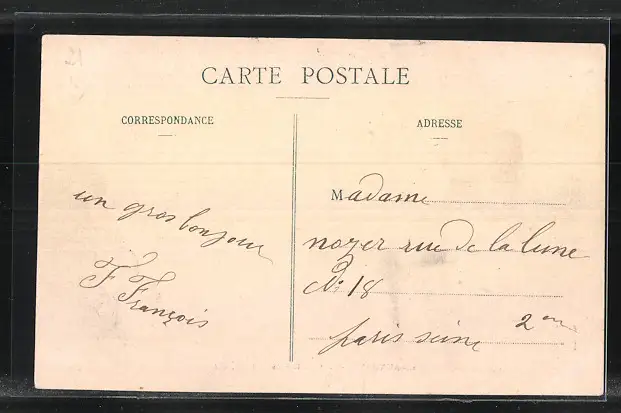 CARTE POSTALE
CORRESPONDANCE
ADRESSE
un gros bonjour
F François
Madame
noyer rue de la lune
No 18
paris seine 2em